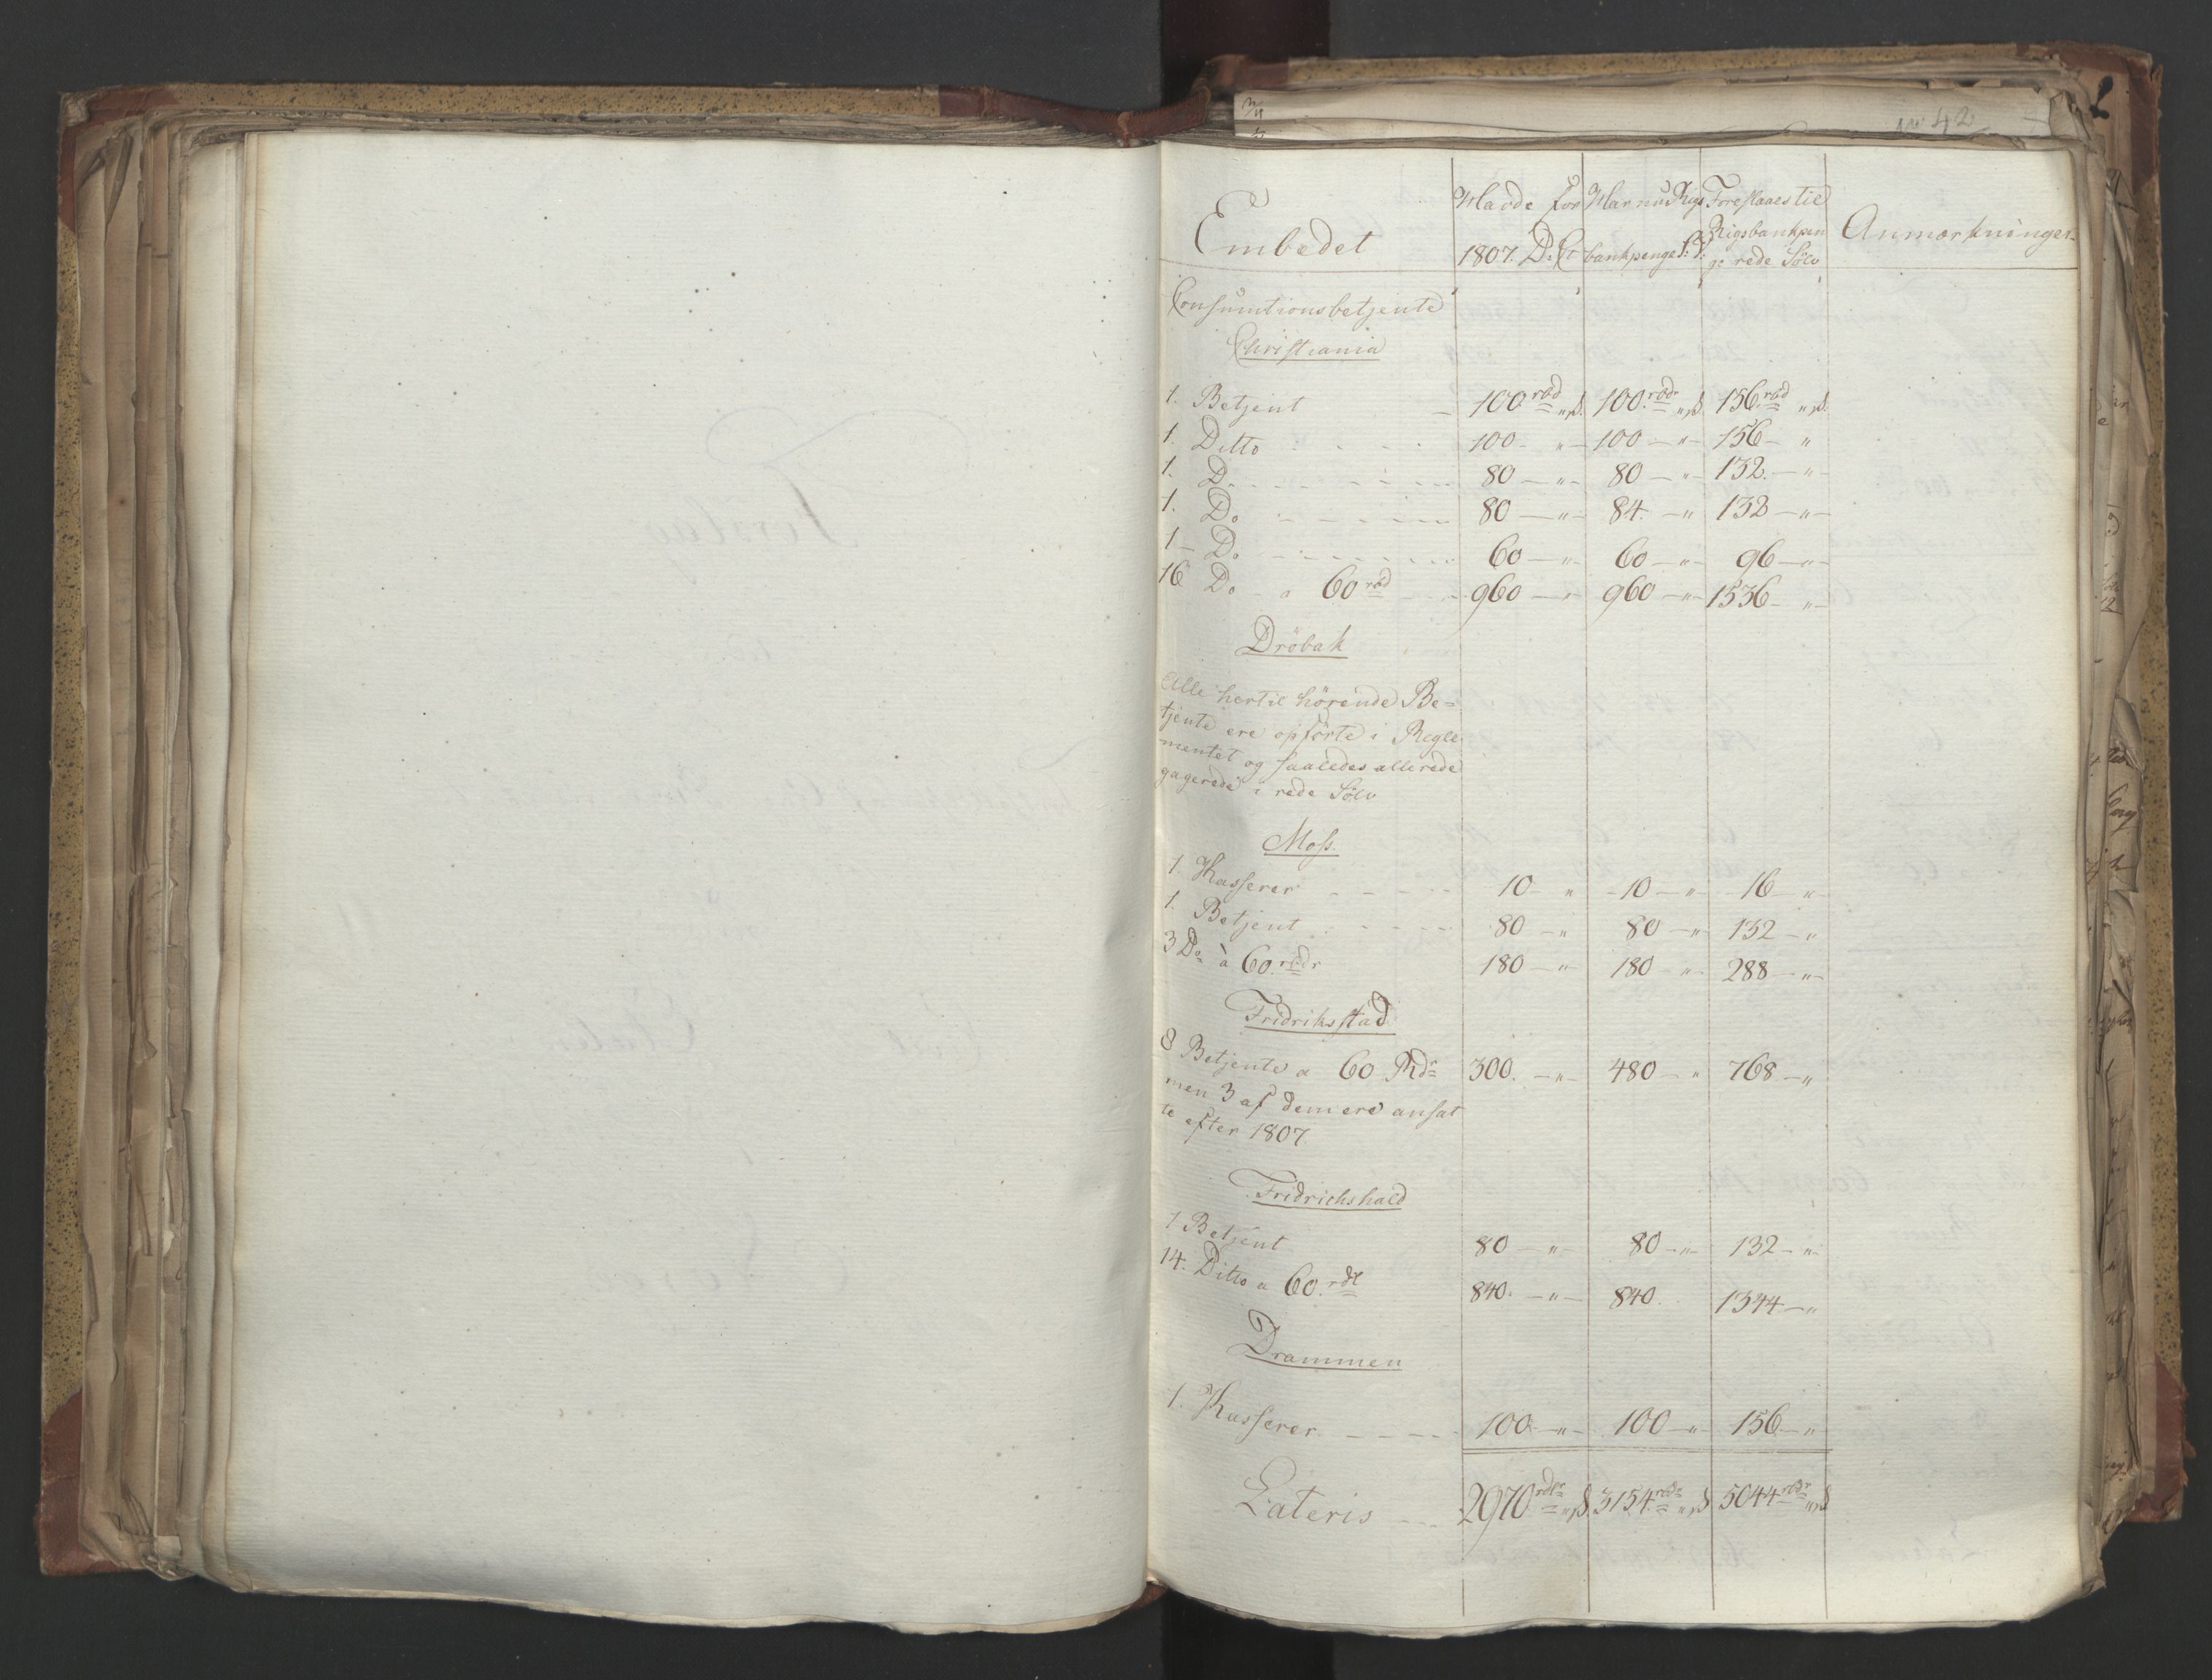 No 42
Embedet
Havde for 1807. D. Ct
Har nu Rigsbankpenge S: V:
Foreslaaes til Rigsbankpenge rede Sölv
Anmærkninger.
Consumtionsbetjente
Christiania
1. Betjent — 100 rbd „ ß. 100. rbdr „ ß. 156. rbd „ ß.
1. Ditto 100 - „ - 100 — „ - 156 - „
1. Do 80 — „ - 80 — „ - 132. — „ -
1. Do 80 — „ - 84. — „ 132 — „ -
1 - Do 60 — „ - 60 — „ - 96 — „ -
16 Do - a 60 rbd 960 — „ - 960 — „ - 1536 - „ -
Dröbak
Alle hertil hörende Be=
tjente ere opförte i Regle
mentet og saaledes allerede
gagerede i rede Sölv
Moss.
1. Kasserer 10 - „ - 10 — „ - 16 - „ -
1. Betjent 80 — „ 80 — „ - 132 - „
3 Do à 60. rbdr 180 — „ - 180 - „ - 288 — „ -
Fridriksstad
8 Betjente a 60 Rdr 300. — „ - 480 — „ 768 — „
men 3 af dem ere ansat
te efter 1807.
Fridrichshald
1 Betjent 80 — „ - 80 — „ - 132 - „ -
14. Ditto a 60. rdl 840. — „ — 840. 1344 — „
Drammen
1. Kasserer 100 - „ - 100 — „ - 156 — „
Lateris 2970 rdlr „ ß. 3154. rbdr „ ß 5044 rbdr „ ß